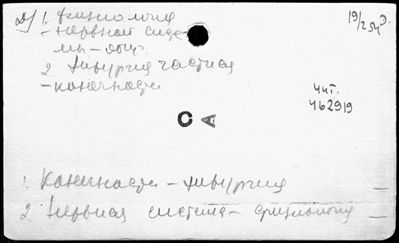 Д/ 1. Физиология
- нервной систе-
мы - общ.
2 Хирургия частная
- конечности
19/2 54 Э.
Чит.
462919
С А
1. Конечности - хирургия
2. Нервная система - физиология